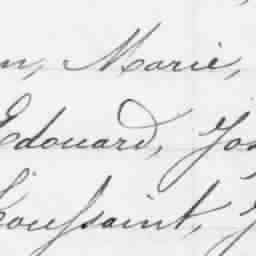 n, Marie,
Edouard, Jos
Toussaint, J